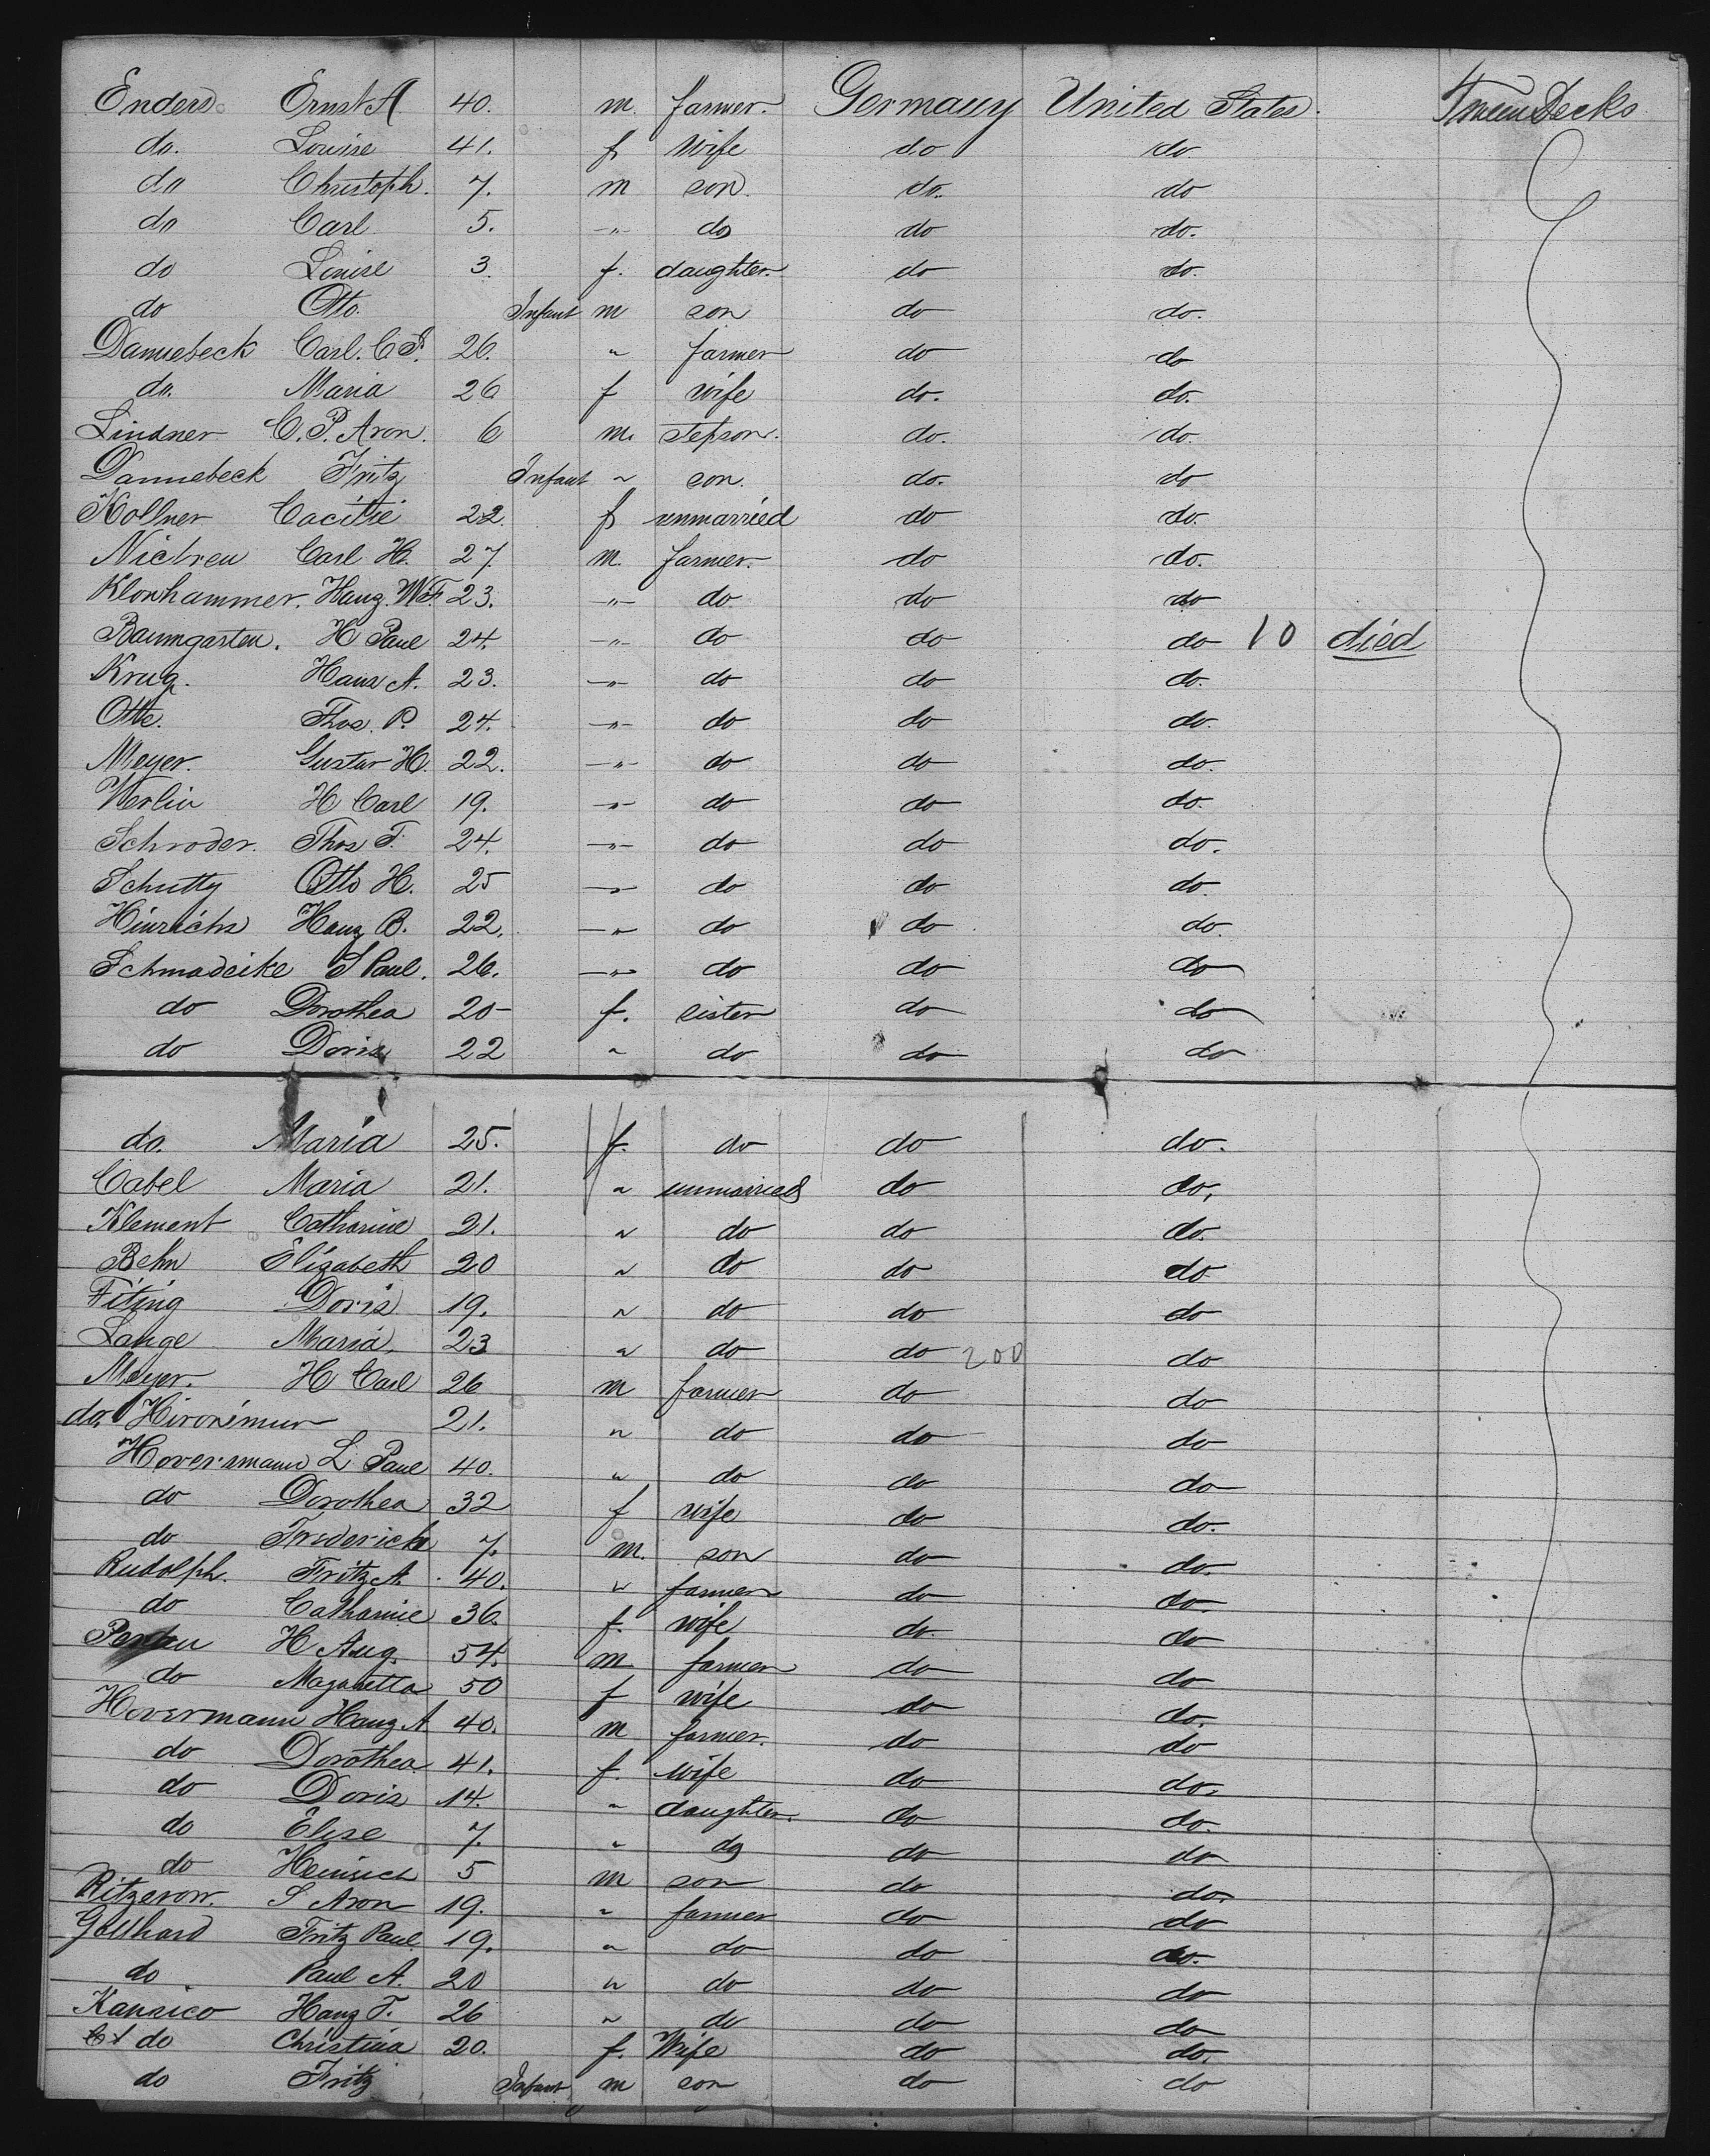 Enders Ernst A 40. m. farmer. Germany United States. Tween Decks
do. Louise 41. f wife do do.
do Christoph. 7. m son. do. do
do Carl 5. -"- do do do.
do Louise 3. f. daughter do do.
do Otto. Infant m son do do.
Dannebeck Carl. C. F. 26. " farmer do do
do. Maria 26 f wife do. do.
Lindner C. P. Aron. 6 m. stepson. do. do.
Dannebeck Fritz Infant " son. do. do
Kollner Cacilie 22. f unmarried do do.
Carl H. 27. m. farmer. do do.
Klonhammer. Hanz. W. F. 23. -"- do do do
Baumgarten. H Paul 24. -"- do do do 10 died
Krug. Hans A. 23. -"- do do do.
Otte. Thos. P. 24. -"- do do do.
Meyer. Gustav H. 22. -"- do do do.
Werlin H Carl 19. -"- do do do.
Schroder. Thos F. 24. -"- do do do.
Schutty Otto H. 25 -"- do do do.
Hinrichs Hanz B. 22. -"- do do do.
Schmadeike S Paul. 26. -"- do do do
do Dorothea 20- f. sister do do
do Doris 22 " do do do
do. Maria 25. f. do do do.
Cabel Maria 21. " unmarried do do.
Klement Catharine 21. " do do do.
Behn Elizabeth 20 " do do do
Fiting Doris 19. " do do do
Lange Maria. 23 " do do 200 do
Meyer. H Carl 26 m farmer do do
do. Hironimur 21. " do do do
Hoversmann L Paul 40. " do do do
do Dorothea 32 f wife do do.
do Frederick 7. m. son do do.
Rudolph. Fritz A. 40. " farmer do do.
do Catharine 36. f. wife do. do
H Aug. 54. m farmer do do
do Magaretta 50 f wife do do.
Hovermann Hanz A 40. m farmer. do do
do Dorothea 41. f. wife do do.
do Doris 14. " daughter. do do.
do Elise 7. " do do do
do Heinrich 5 m son do do.
Ritzerow. S Aron 19. " farmer do do
Gotthard Fritz Paul 19. " do do do.
do Paul A. 20 " do do do
Kanzico Hanz F. 26 " do do do
do Christina 20. f. Wife do do.
do Fritz Infant m son do do